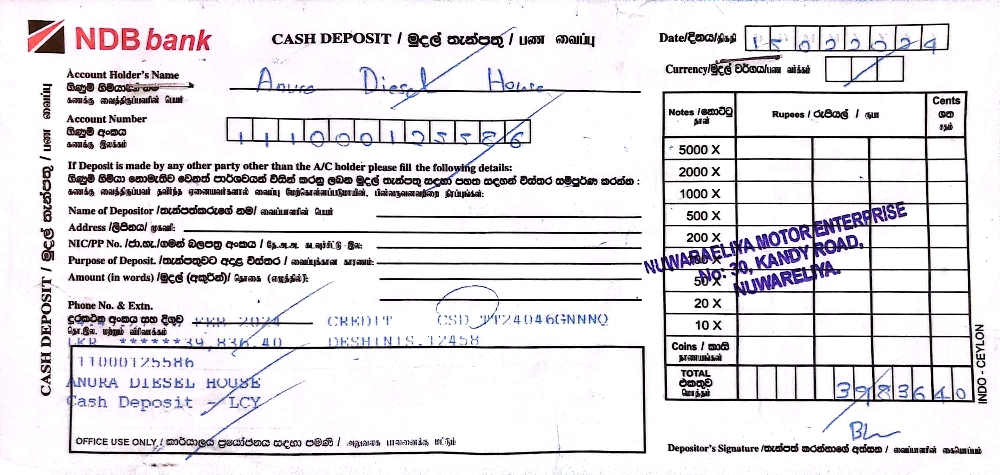 NDB bank
CASH DEPOSIT / මුදල් තැන්පතු / பண வைப்பு
Date/දිනය/திகதி 15022024
Currency/මුදල් වර්ගය/பண வர்க்கம்
Account Holder's Name Anura Diesel House
ගිණුම් හිමියාගේ නම
கணக்கு வைத்திருப்பவரின் பெயர்
Account Number
ගිණුම් අංකය 111000125586
கணக்கு இலக்கம்
If Deposit is made by any other party other than the A/C holder please fill the following details:
ගිණුම් හිමියා නොමැතිව වෙනත් පාර්ශවයන් විසින් කරනු ලබන මුදල් තැන්පතු සඳහා පහත සඳහන් විස්තර සම්පූර්ණ කරන්න :
Name of Depositor /තැන්පත්කරුගේ නම/ வைப்பாளரின் பெயர்
Address /ලිපිනය/ முகவரி:
NIC/PP No. /ජා.හැ./ගමන් බලපත්‍ර අංකය /
Purpose of Deposit. /තැන්පතුවට අදාළ විස්තර / வைப்புக்கான காரணம்:
Amount (in words) /මුදල් (අකුරින්)/ தொகை (எழுத்தில்):
Phone No. & Extn.
දුරකථන අංකය සහ දිගුව
FEB 2024 CREDIT CSD TT24046GNNNQ
LKR ******39,836.40 DESHINIS.12458
11000125586
ANURA DIESEL HOUSE
Cash Deposit - LCY
OFFICE USE ONLY / කාර්යාලය ප්‍රයෝජනය සඳහා පමණි / அலுவலக பாவனைக்கு மட்டும்
CASH DEPOSIT / මුදල් තැන්පතු / பண வைப்பு
Notes /නෝට්ටු
தாள்
Rupees / රුපියල් / ரூபா
Cents
ශත
சதம்
5000 X
2000 X
1000 X
500 X
200 X
50 X
20 X
10 X
Coins / කාසි
நாணயங்கள்
TOTAL
එකතුව
மொத்தம்
3983640
NUWARAELIYA MOTOR ENTERPRISE
No: 30, KANDY ROAD,
NUWARELIYA.
Depositor's Signature /තැන්පත් කරන්නාගේ අත්සන / வைப்பாளரின் கையொப்பம்
INDO - CEYLON